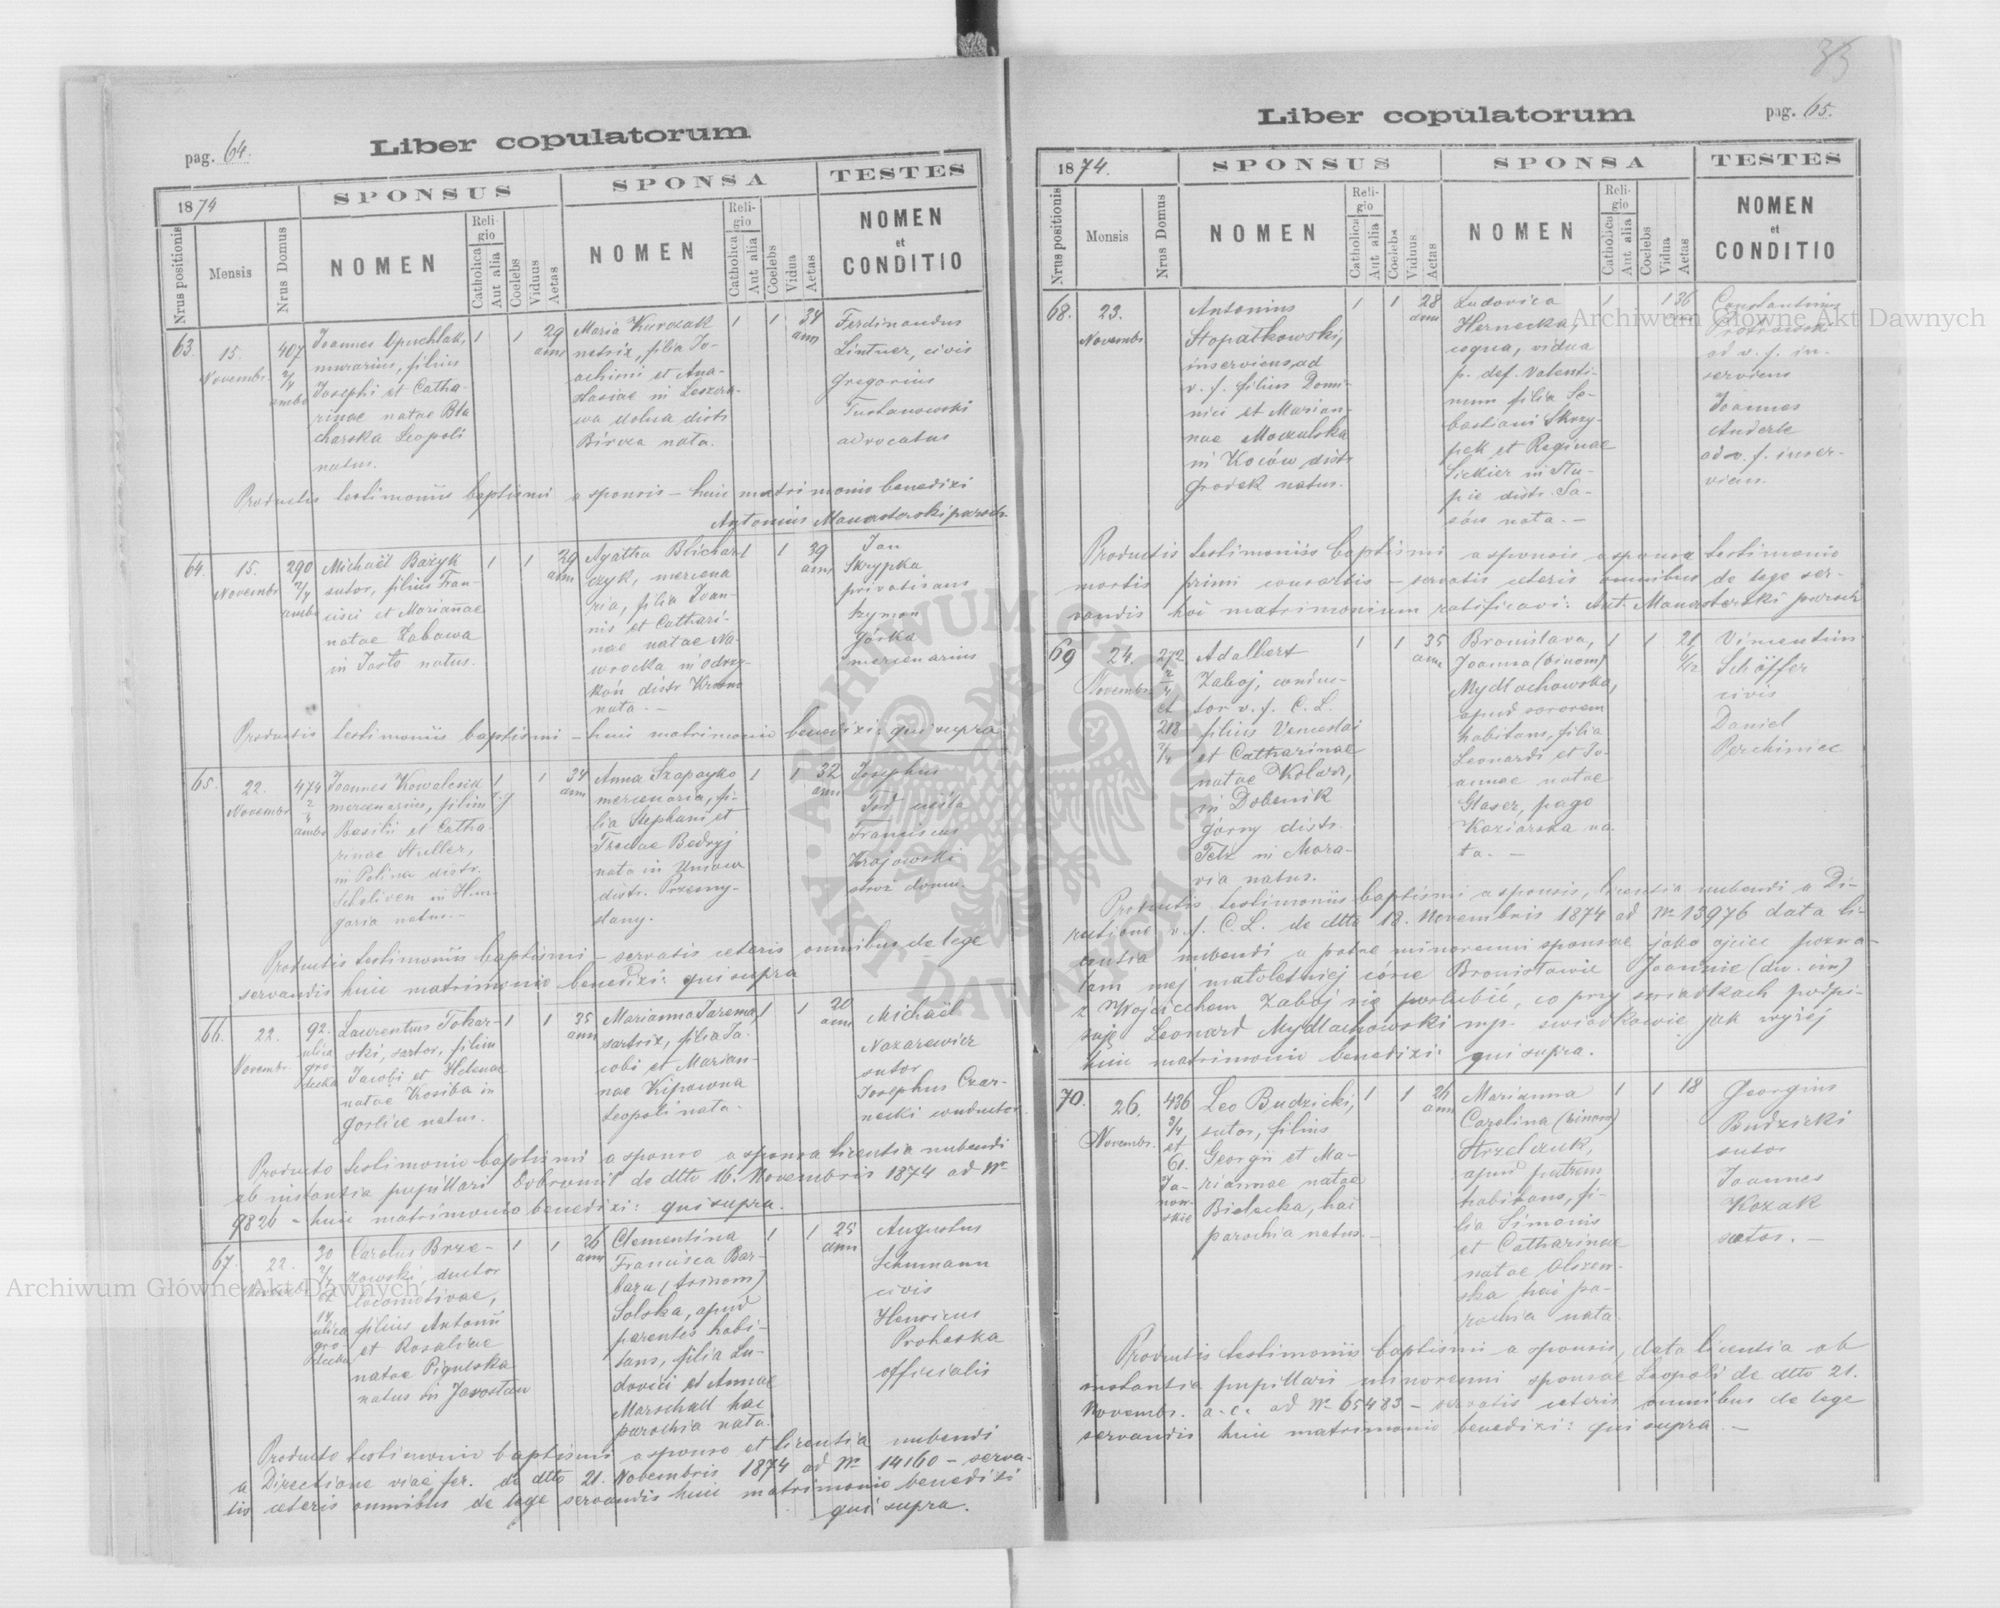 33
pag. 64.
Liber copulatorum
1874
SPONSUS
SPONSA
TESTES
Nrus positionis
Mensis
Nrus Domus
NOMEN
Religio
Catholica
Aut alia
Coelebs
Viduus
Aetas
NOMEN
Religio
Catholica
Aut alia
Coelebs
Vidua
Aetas
NOMEN
et
CONDITIO
63.
15.
Novembr.
407
2/4
ambo
Joannes Opuchlak,
murarius, filius
Josephi et Catha-
rinae natae Bla
charska Leopoli
natus.
1
1
29
ann
Maria Kurczak
filia Jo-
achimi et Ana-
stasiae in Leszcza-
wa dolna distr
Bircza nata.
1
1
34
ann
Ferdinandus
Lintner, civis
Gregorius
Tustanowski
advocatus
Productis testimoniis baptismi a sponsis – huic matrimonio benedixi
Antonius Manasterski paroch.
64.
15.
Novembr
290
2/4
ambo
Michaël Bażyk
sutor, filius Fran-
cisci et Mariannae
natae Zabawa
in Jasło natus.
1
1
29
ann
Agatha Blichar
czyk, mercena
ria, filia Joan-
nis et Cathari-
nae natae Na-
wrocka in Odrzy-
koń distr Krosno
nata. –
1
1
39
ann
Jan
Skrypka
privatisans
Szymon
Górka
mercenarius
Productis testimoniis baptismi – huic matrimonio benedixi: qui supra
65.
22.
Novembr
474
2
4
ambo
Joannes Kowalcsik
mercenarius, filius
Basilii et Catha-
rinae Stuller,
in Polina distr.
in Hun-
garia natus. –
1
r.g
1
34
ann
Anna Szapayko
mercenaria, fi-
lia Stephani et
Fremae Bedryj
nata in Uniow
distr. Przemy-
slany.
1
1
32
ann
Josephus
Franciscus
Krajowski
stróż domu.
Productis testimoniis baptismi – servatis ceteris omnibus de lege
servandis huic matrimonio benedixi: qui supra
66.
22.
Novembr.
92.
ulica
gro-
decka
Laurentius Tokar-
ski, sartor, filius
Jacobi et Helenae
natae Kosiba in
Gorlice natus.
1
1
35
ann
Marianna Jarema,
sartrix, filia Ja-
cobi et Marian-
nae Kipowna
Leopoli nata.
1
1
20
ann
Michaël
Nazarewicz
sutor
Josephus Czar-
necki conductor
Producto testimonio baptismi a sponso a sponsa licentia nubendi
ab instantia pupillari Dobromil do dtto 16. Novembris 1874 ad Nr
9826 – huic matrimonio benedixi: qui supra.
67.
22.
30
2/4
et
14
ulica
gro-
decka
Carolus Brze-
zowski, ductor
locomotivae,
filius Antonii
et Rosaliae
natae Pigulska
natus in Jarosłau
1
1
26
ann
Clementina
Francisca Bar-
bara (trinom)
Solska, apud
parentes habi-
tans, filia Lu-
dovici et Annae
Marschall hac
parochia nata.
1
1
25
ann
Augustus
Schumann
civis
Henricus
Prohaska
officialis
Producto testimonio baptismi a sponso et licentia nubendi
a Directione viae fer. de dtto 21. Novembris 1874 ad Nr 14160 – serva-
tis ceteris omnibus de lege servandis huic matrimonio benedixi
qui supra.
pag. 65.
Liber copulatorum
1874.
SPONSUS
SPONSA
TESTES
Nrus positionis
Mensis
Nrus Domus
NOMEN
Religio
Catholica
Aut alia
Coelebs
Viduus
Aetas
NOMEN
Religio
Catholica
Aut alia
Coelebs
Vidua
Aetas
NOMEN
et
CONDITIO
68.
23.
Novembr
Antonius
Stopatkowski,
inserviens ad
v. f. filius Domi-
nici et Marian-
nae Moczulska
in Koców distr
Grodek natus.
1
1
28
ann
Ludovica
Hernecka,
coqua, vidua
p. def. Valenti-
num filia Se-
bastiani Skrzy-
pek et Reginae
Sickier in Stu-
pie distr. Sa-
sów nata. –
1
1
36
Constantinus
ad v. f. in-
serviens
Joannes
Anderle
ad v. f. inser-
viens.
Productis testimoniis baptismi a sponsis a sponsa testimonio
mortis primi consortis – servatis ceteris omnibus de lege ser-
vandis hoc matrimonium ratificavi: Ant. Manasterski paroch
69
24.
Novembr.
272
2
4
et
218
2/4
Adalbert
Zaboj, conduc-
tor v. f. C. L.
filius Venceslai
et Catharinae
natae Kolarz,
in Dobenik
górny distr.
Telz in Mora-
via natus.
1
1
35
ann
Bronislava,
Joanna (binom)
Mydlachowska,
apud sororem
habitans, filia
Leonardi et Jo-
annae natae
Glaser, pago
Koziarska na-
ta. –
1
1
21
Vincentius
Schöffer
civis
Daniel
Perchiniec
Productis testimoniis baptismi a sponsis, licentia nubendi a Di-
rectione v. f. C. L. de dtto 18. Novembris 1874 ad Nr 13976 data li-
centia nubendi a patre minorenni sponsae jako ojciec pozwa-
lam mej małoletniej córce Bronisławie Joannie (dw. im)
z Wojciechem Zaboj się poślubić, co przy świadkach podpi-
suję Leonard Mydlachowski mp. świadkowie jak wyżej
huic matrimonio benedixi: qui supra.
70.
26.
Novembr.
436
3/4
et
61.
Ja-
now-
skie
Leo Budzicki,
sutor, filius
Georgii et Ma-
riannae natae
Bielecka, hac
parochia natus. –
1
1
26
ann
Marianna
Carolina (binom)
Strzelczuk,
apud patrem
habitans, fi-
lia Simonis
et Catharinae
natae Olszen-
ska hac pa-
rochia nata.
1
1
18
Georgius
Budzicki
sutor
Joannes
Kozak
Productis testimoniis baptismi a sponsis, data licentia ab
instantia pupillari minorenni sponsae Leopoli de dtto 21.
Novembr. a. c. ad Nr 65483 – servatis ceteris omnibus de lege
servandis huic matrimonio benedixi: qui supra. –
Archiwum Główne Akt Dawnych
Archiwum Główne Akt Dawnych
ARCHIWUM GŁÓWNE AKT DAWNYCH